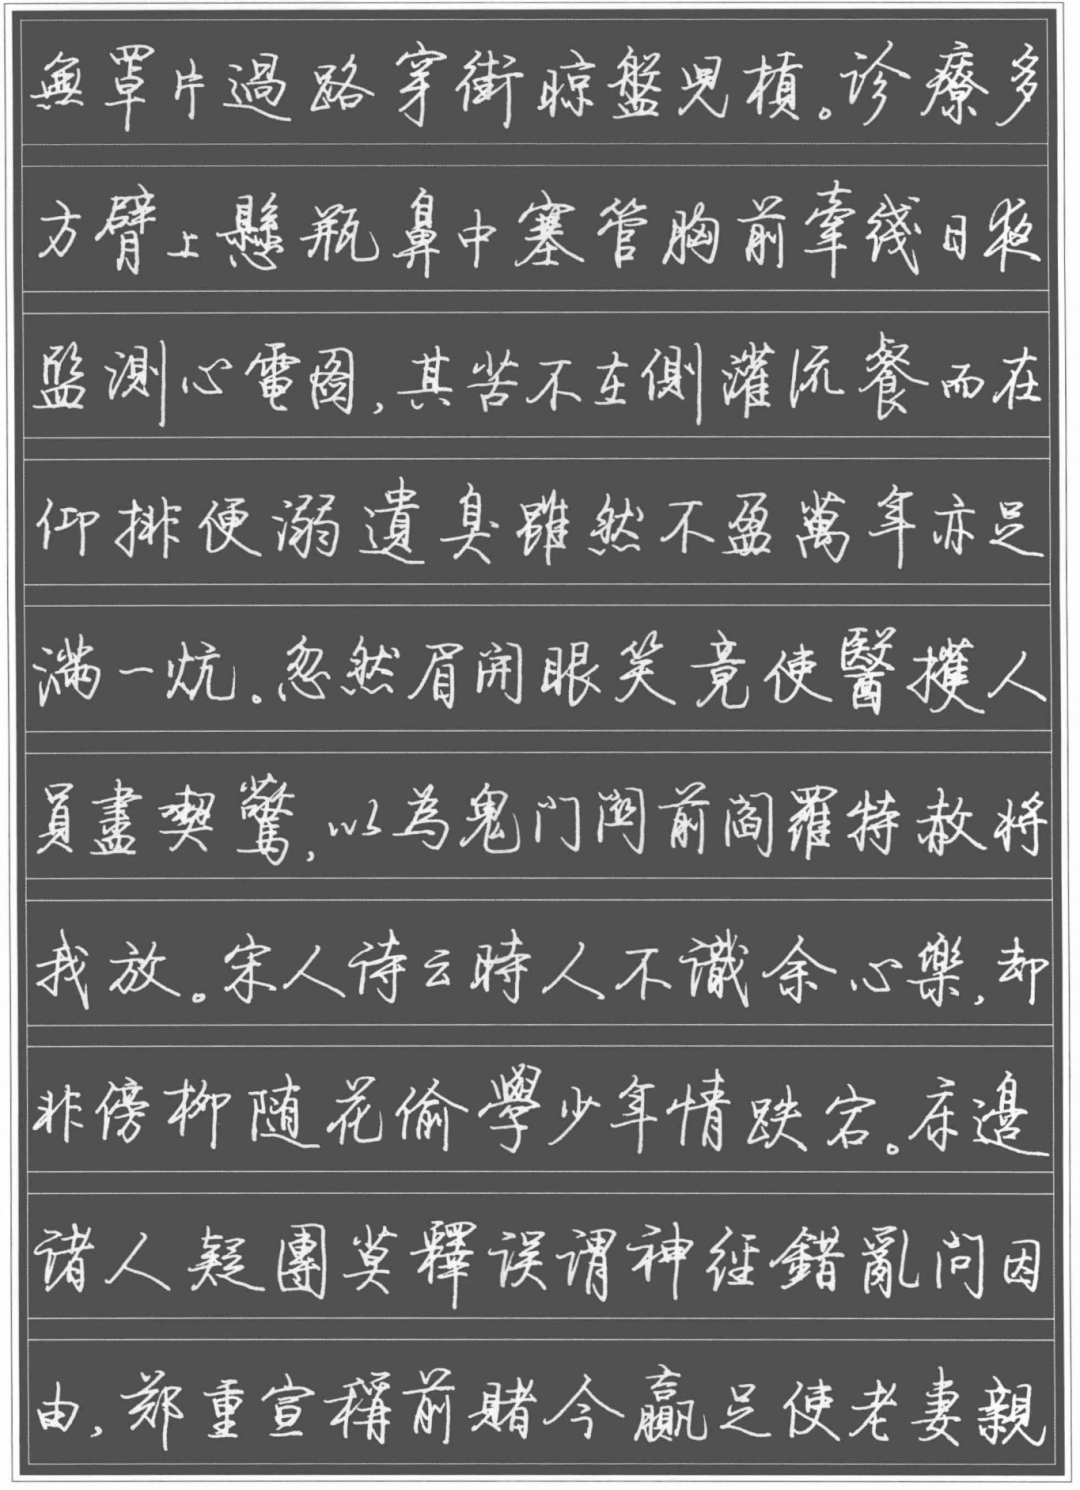 無罩片過路穿街晾盤兒槓。診療多
方臂上懸瓶鼻中塞管胸前牽綫日夜
監測心電圖,其苦不在側灌流餐而在
仰排便溺遺臭雖然不盈萬年亦足
滿一炕。忽然眉開眼笑竟使醫護人
員盡喫驚,以為鬼门関前閻羅特赦将
我放。宋人诗云時人不識余心樂,却
非傍柳随花偷學少年情跌宕。床邊
诸人疑團莫釋误谓神經錯亂问因
由,郑重宣稱前赌今贏足使老妻親